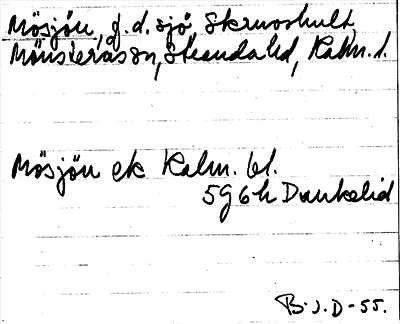 Mösjön, g.d. sjö, Skruvshult,
Mönsterås sn, Stranda hd, Kalm. l.
Mösjön ek Kalm. bl.
5g6h Dankelid
B.J.D-55.